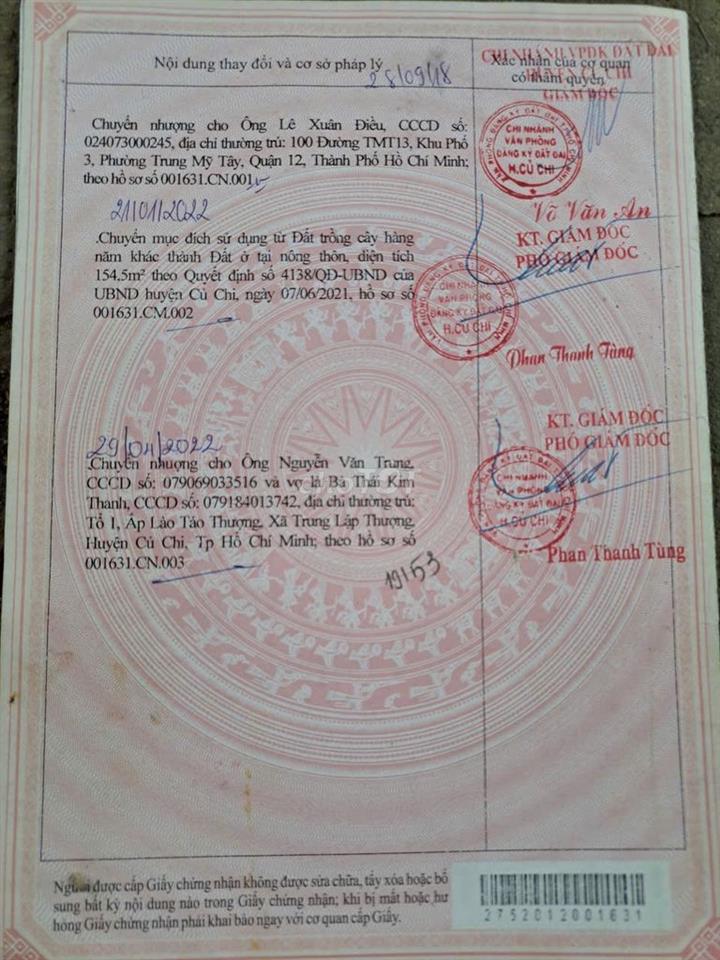 Nội dung thay đổi và cơ sở pháp lý
Xác nhận của cơ quan
có thẩm quyền
28/09/18
CHI NHÁNH VPĐK ĐẤT ĐAI
HUYỆN CỦ CHI
GIÁM ĐỐC
Chuyển nhượng cho Ông Lê Xuân Điều, CCCD số:
024073000245, địa chỉ thường trú: 100 Đường TMT13, Khu Phố
3, Phường Trung Mỹ Tây, Quận 12, Thành Phố Hồ Chí Minh;
theo hồ sơ số 001631.CN.001
CHI NHÁNH
VĂN PHÒNG
ĐĂNG KÝ ĐẤT ĐAI
H.CỦ CHI
Võ Văn An
21/01/2022
.Chuyển mục đích sử dụng từ Đất trồng cây hàng
năm khác thành Đất ở tại nông thôn, diện tích
154,5m² theo Quyết định số 4138/QĐ-UBND của
UBND huyện Củ Chi, ngày 07/06/2021, hồ sơ số
001631.CM.002
KT. GIÁM ĐỐC
PHÓ GIÁM ĐỐC
CHI NHÁNH
VĂN PHÒNG
ĐĂNG KÝ ĐẤT ĐAI
H.CỦ CHI
Phan Thanh Tùng
29/04/2022
.Chuyển nhượng cho Ông Nguyễn Văn Trung,
CCCD số: 079069033516 và vợ là Bà Thái Kim
Thanh, CCCD số: 079184013742, địa chỉ thường trú:
Tổ 1, Ấp Lào Táo Thượng, Xã Trung Lập Thượng,
Huyện Củ Chi, Tp Hồ Chí Minh; theo hồ sơ số
001631.CN.003
KT. GIÁM ĐỐC
PHÓ GIÁM ĐỐC
CHI NHÁNH
VĂN PHÒNG
ĐĂNG KÝ ĐẤT ĐAI
H.CỦ CHI
Phan Thanh Tùng
19153
Người được cấp Giấy chứng nhận không được sửa chữa, tẩy xóa hoặc bổ
sung bất kỳ nội dung nào trong Giấy chứng nhận; khi bị mất hoặc hư
hỏng Giấy chứng nhận phải khai báo ngay với cơ quan cấp Giấy.
2752012001631